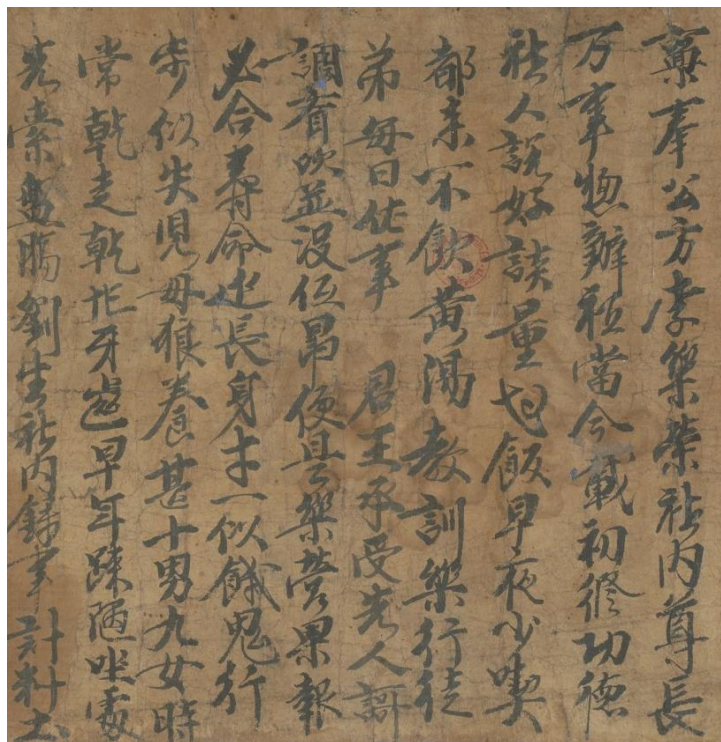 稟奉公方李樂榮社内尊長
万事惣辦社當今載初修功德
社人說好談量 飯早夜少喫
都來不飲黃湯教訓樂行徒
弟每日作事 君王承受老人訶
調看吹並沒伍昂便是樂營果報
必合壽命延長身才一似餓鬼行
步似失兒母狼養甚十男九女時
常乾走乾忙牙 早年踈陋坐處
先索 腸劉生社内鑄事計料